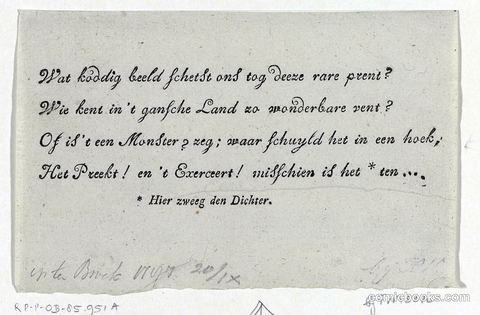 Wat koddig beeld schetst ons tog deeze rare prent?
Wie kent in 't gansche Land zo wonderbare vent?
Of is 't een Monster? zeg; waar schuyld het in een hoek,
Het Preekt! en 't Exerceert! misschien is het * ten....
* Hier zweeg den Dichter.
20/IX
RP-P-OB-85.951A
gemicbooks.com